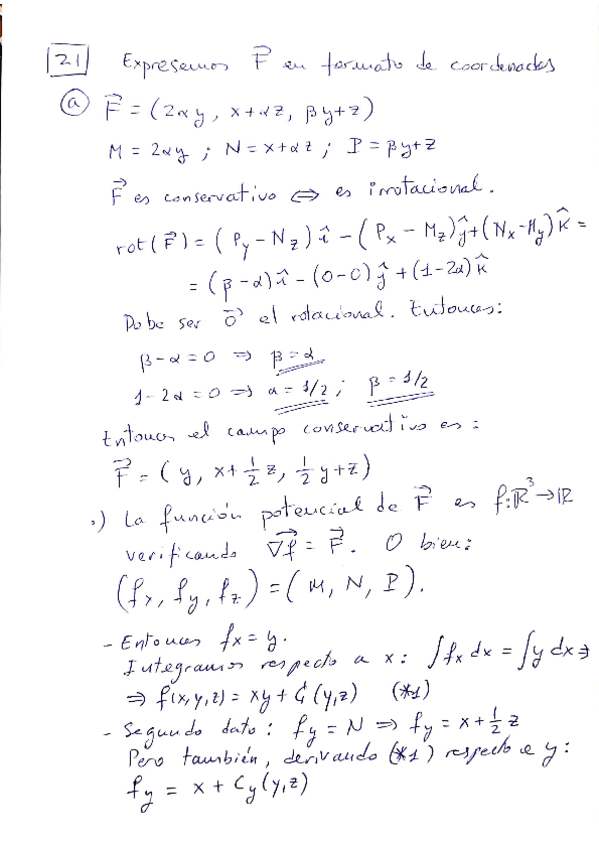 21 Expresemos F⃗ en formato de coordenadas
ⓐ F⃗ = (2αy, x+αz, βy+z)
M = 2αy ; N = x+αz ; P = βy+z
F⃗ es conservativo ⇔ es irrotacional.
rot(F⃗) = (Py − Nz) î − (Px − Mz) ĵ + (Nx − My) k̂ =
= (β−α) î − (0−0) ĵ + (1−2α) k̂
Debe ser 0⃗ el rotacional. Entonces:
β−α = 0 ⇒ β = α
1−2α = 0 ⇒ α = 1/2 ; β = 1/2
Entonces el campo conservativo es:
F⃗ = (y, x+½z, ½y+z)
.) La función potencial de F⃗ es f: ℝ³→ℝ
verificando ∇⃗f = F⃗. O bien:
(fx, fy, fz) = (M, N, P).
- Entonces fx = y.
Integramos respecto a x: ∫fx dx = ∫y dx ⇒
⇒ f(x,y,z) = xy + C(y,z) (*1)
- Segundo dato: fy = N ⇒ fy = x+½z
Pero también, derivando (*1) respecto a y:
fy = x + Cy(y,z)